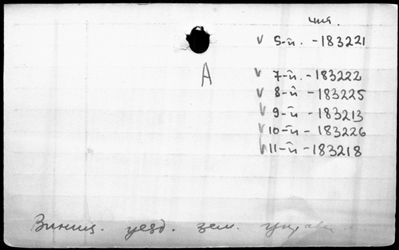 чит.
v 5-й. - 183221
А
v 7-й. - 183222
v 8-й - 183225
v 9-й - 183213
v 10-й - 183226
v 11-й - 183218
уезд. зем.